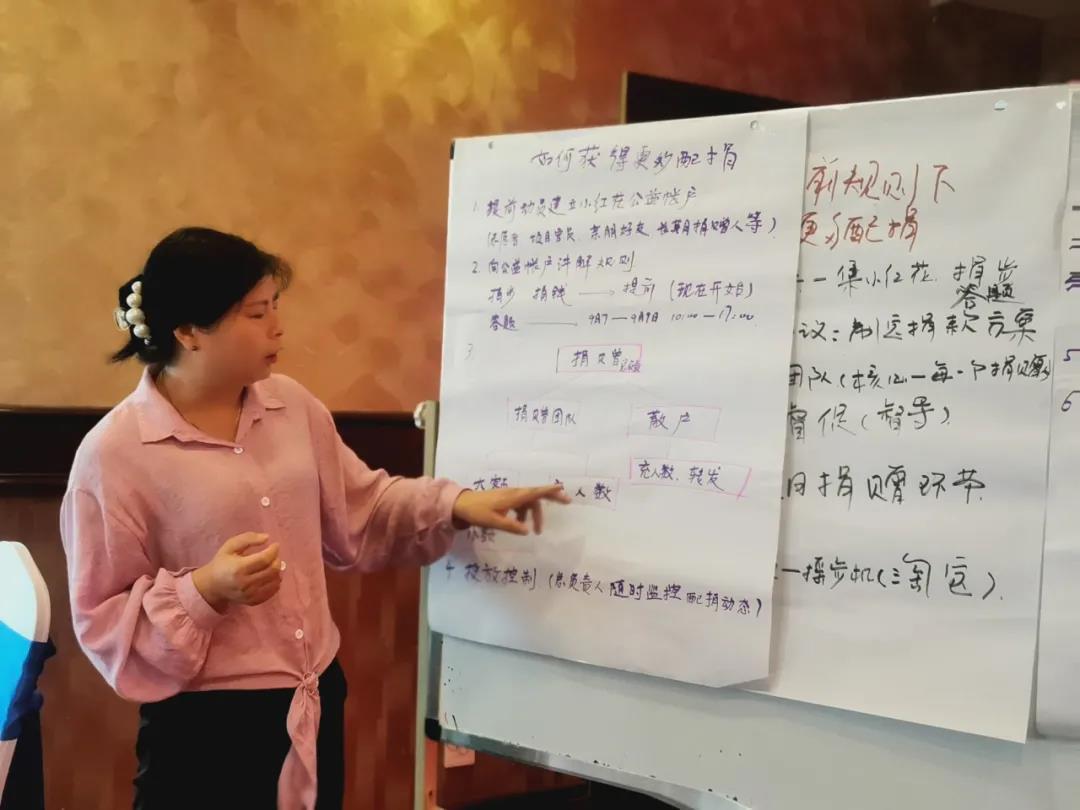 如何获得更多配捐
1. 提前动员建立小红花公益帐户
项目官员、亲朋好友、长期捐赠人等)
2. 向公益帐户讲解规则
捐步 捐钱 → 提前 (现在开始)
答题 → 9月7—9月9日 10:00—17:00
3
捐赠
捐赠团队 散户
大额 人数 充人数、转发
小额
4 投放控制 (总负责人随时监控配捐动态)
前规则下
更多配捐
一集小红花、捐步
答题
议:制定捐款方案
团队(核心一每一个捐赠
督促(督导)
日捐赠环节
一摇步机(淘宝).
5
6